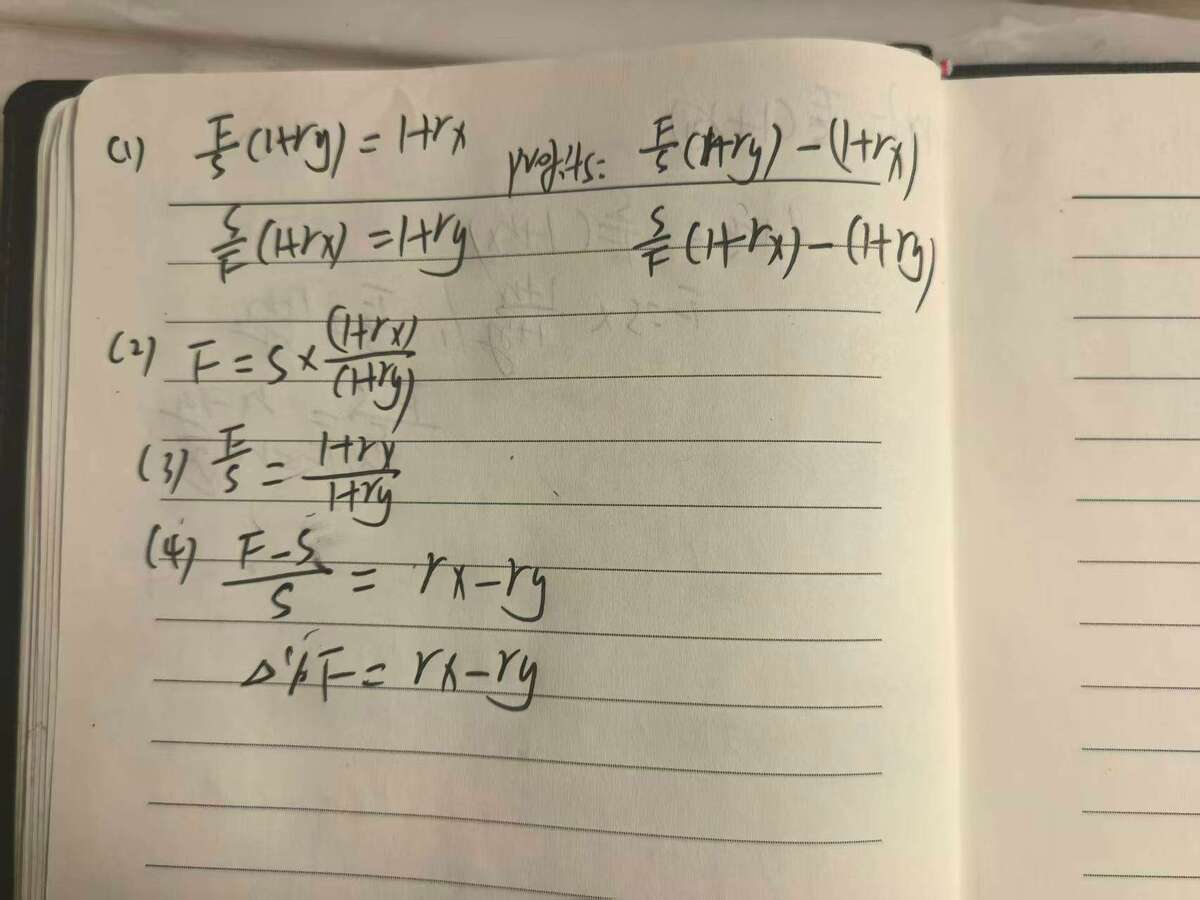 (1) F/S (1+ry) = 1+rx profits: F/S (1+ry) - (1+rx)
S/F (1+rx) = 1+ry S/F (1+rx) - (1+ry)
(2) F = S × (1+rx)/(1+ry)
(3) F/S = 1+rx/1+ry
(4) F-S/S = rx-ry
Δ%F = rx-ry